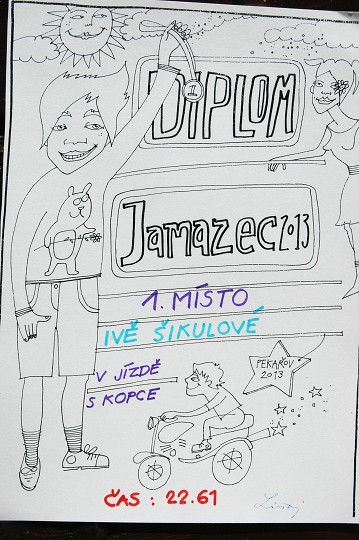 DIPLOM
Jamazec 2013
1. MÍSTO
IVĚ ŠIKULOVÉ
V JÍZDĚ
S KOPCE
PEKAŘOV
2013
ČAS : 22.61